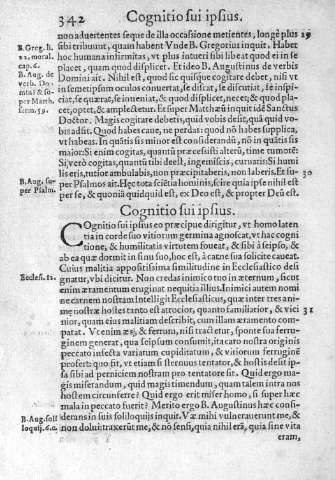 342 Cognitio sui ipsius.
non aduertentes seque de illa occasione metientes, longè plus 29
B. Greg. li. sibi tribuunt, quam habent Vnde B. Gregorius inquit. Haber
22. moral. hoc humana infirmitas, vt plus intueri sibi libeat quod ei in se
cap. 6. placet, quam quod displicet. Et ideo B. Augustinus de verbis
B. Aug. de Domini ait. Nihil est, quod sic quisque cogitare debet, nisi vt
verb. Do- in semetipsum oculos conuertat, se discat, se discutiat, se inspi-
mini & su- ciat, se quærat, se inueniat, & quod displicet, necet; & quod pla-
per Matth. cet, optet, & amplectatur. Et super Matthæũ inquit idẽ Sanctus
serm. 59. Doctor. Magis cogitare debetis, quid vobis desit, quã quid vo-
bis adsit. Quod habes caue, ne perdas: quod nõ habes supplica,
vt habeas. In quãtis sis minor est considerãdũ, nõ in quãtis sis
maior: Si enim cogitas, quantũ præcessisti alterũ, time tumorẽ:
Si verò cogitas, quantũ tibi deest, ingemiscis, curuaris: Si humi
lis eris, tutior ambulabis, non præcipitaberis, non laberis. Et su- 30
B. Aug. su- per Psalmos ait. Hęc tota sciẽtia hominis, scire quia ipse nihil est
per Psalm. per se, & quoniã quidquid est, ex Deo est, & propter Deũ est.
Cognitio sui ipsius.
Cognitio sui ipsius eo præcipuè dirigitur, vt homo laten
tia in corde suo vitiorum germina agnoscat, vt hac cogni
tione, & humilitatis virtutem foueat, & sibi à seipso, &
ab ea quæ dormit in sinu suo, hoc est, à carne sua solicitè caueat.
Cuius malitia appositissima similitudine in Ecclesiastico desi
Ecclesi. 12. gnatur, vbi dicitur. Non credas inimico tuo in æternum, sicut
enim æramentum æruginat nequitia illius. Inimici autem nomi
ne carnem nostram Intelligit Ecclesiasticus, quæ inter tres ani-
mę nostræ hostes tanto est atrocior, quanto familiarior, & vici 31
nior, quam eius malitiam describit, cum illam æramento com-
parat. Vt enim æs, & ferrum, nisi tractetur, sponte sua ferru-
ginem generat, qua seipsum consumit, ita caro nostra originis
peccato infecta variatum cupiditatum, & vitiorum ferruginẽ
profert: quo fit, vt etiam si sternuus tentator, & hostis desit ip-
sa sibi ad perniciem nostram pro tentatore sit. Quid ergo ma-
gis miserandum, quid magis timendum, quam talem intra nos
hostem circunferre? Quid ergo erit miser homo, si super hæc
mala in peccato fuerit? Merito ergo B. Augustinus hæc consi-
B. Aug. soli derans in suis soliloquijs inquit. Væ mihi vulnerauerunt me, &
loquij. 6. c. non dolui traxerũt me, & nõ sensi, quia nihil erã, quia sine vita
eram,